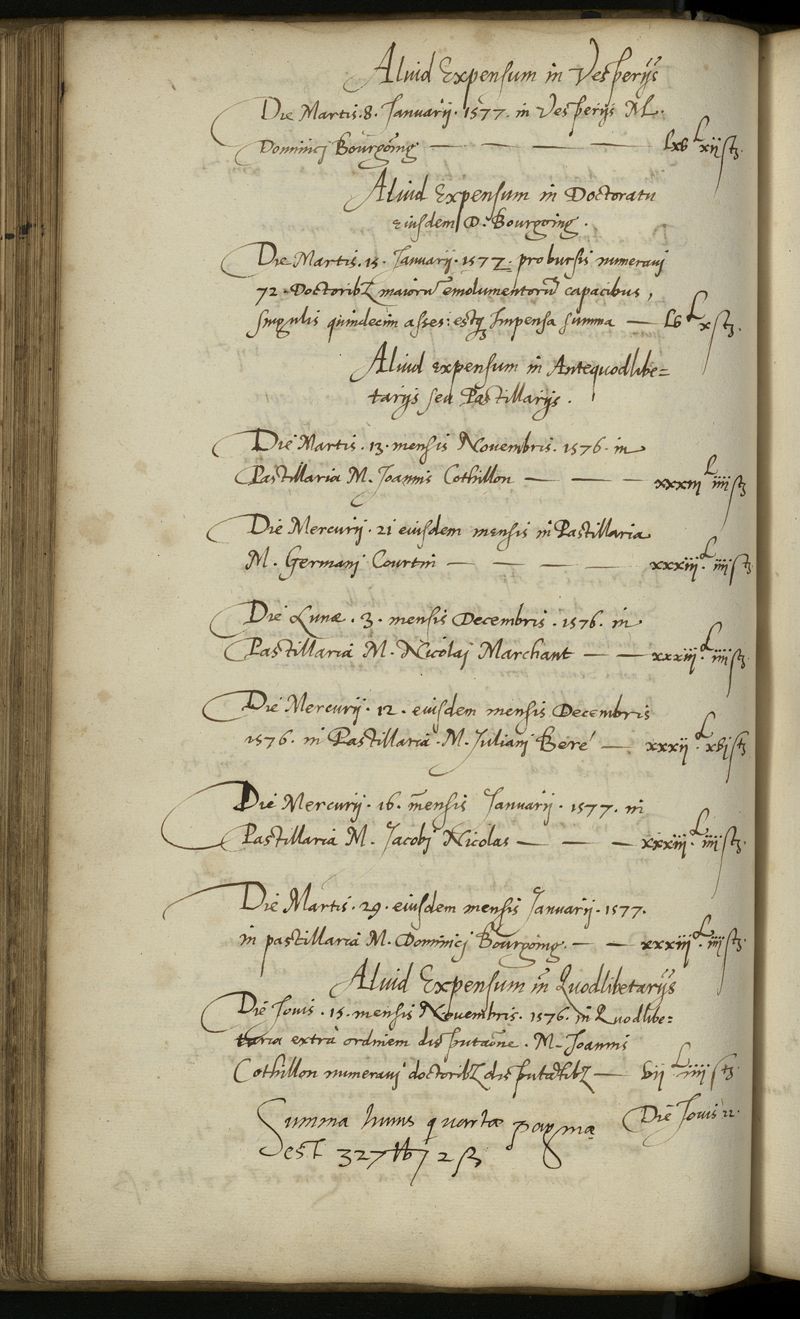 Aliud Expensum in Vesperijs
Die Martis. 8. Januarij. 1577. in Vesperijs M.
Dominicj Bourgoing — — — — lxv L xij sz.
Aliud Expensum in Doctoratu
eiusdem D. Bourgoing.
Die Martis. 15. Januarij. 1577. pro bursis numeravj
72. Doctoribz maiorū emolumentorū capacibus,
singulis quindecim asses: estqz Impensa summa — lv L x sz.
Aliud expensum in Antequodlibe=
tarijs seu Pastillarijs.
Die Martis. 13. mensis Novembris. 1576. in
Pastillaria M. Joannis Cothillon — — — xxxiij L iiij sz
Die Mercurij. 21 eiusdem mensis in Pastillaria
M. Germanj Courtin — — — — xxxiij. L iiij sz
Die Lunæ. 3. mensis Decembris. 1576. in
Pastillaria M. Nicolaj Marchant — — xxxiij. L iiij sz.
Die Mercurij. 12. eiusdem mensis Decembris
1576. in Pastillaria. M. Julianj Beré — xxxij. L xvj sz
Die Mercurij. 16. mensis Januarij. 1577. in
Pastillaria M. Jacobj Nicolas — — — xxxiij. L iiij sz.
Die Martis. 29. eiusdem mensis Januarij. 1577.
in pastillaria M. Dominicj Bourgoing. — — xxxiij L. iiij sz.
Aliud Expensum in Quodlibetarijs
Die Jovis. 15. mensis Novembris. 1576. in Quodlibe=
taria extra ordinem disputaōne. M. Joannis
Cothillon numeravj doctoribz disputātibz — vij L iiij sz.
Die Jovis 22.
Summa huius quartæ paginæ
est 327 lb 12 ß